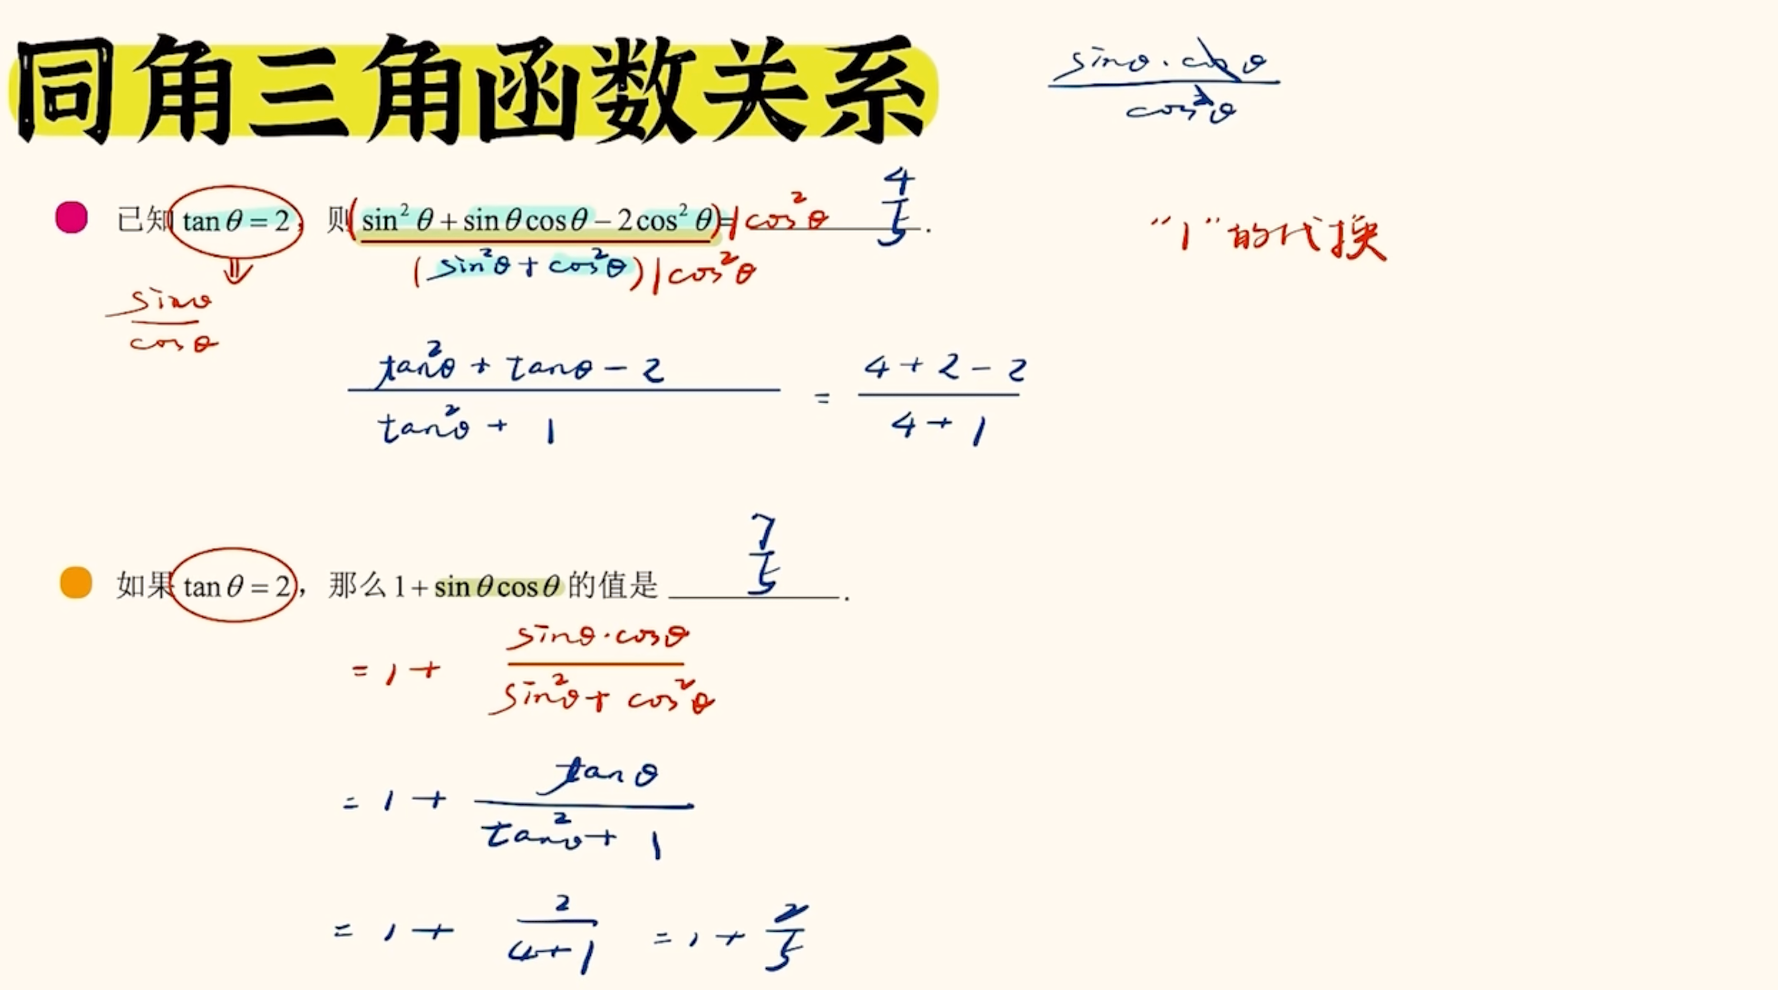 同角三角函数关系
sinθ·cosθ
cos²θ
已知 tanθ=2，则(sin²θ+sinθcosθ−2cos²θ)=/cos²θ 4/5.
(sin²θ+cos²θ)/cos²θ
"1"的代换
⇓
sinθ
cosθ
tan²θ+tanθ-2 = 4+2-2
tan²θ+1 4+1
如果 tanθ=2，那么1+sinθcosθ的值是 7/5.
=1+ sinθ·cosθ
sin²θ+cos²θ
=1+ tanθ
tan²θ+1
=1+ 2/(4+1) =1+ 2/5